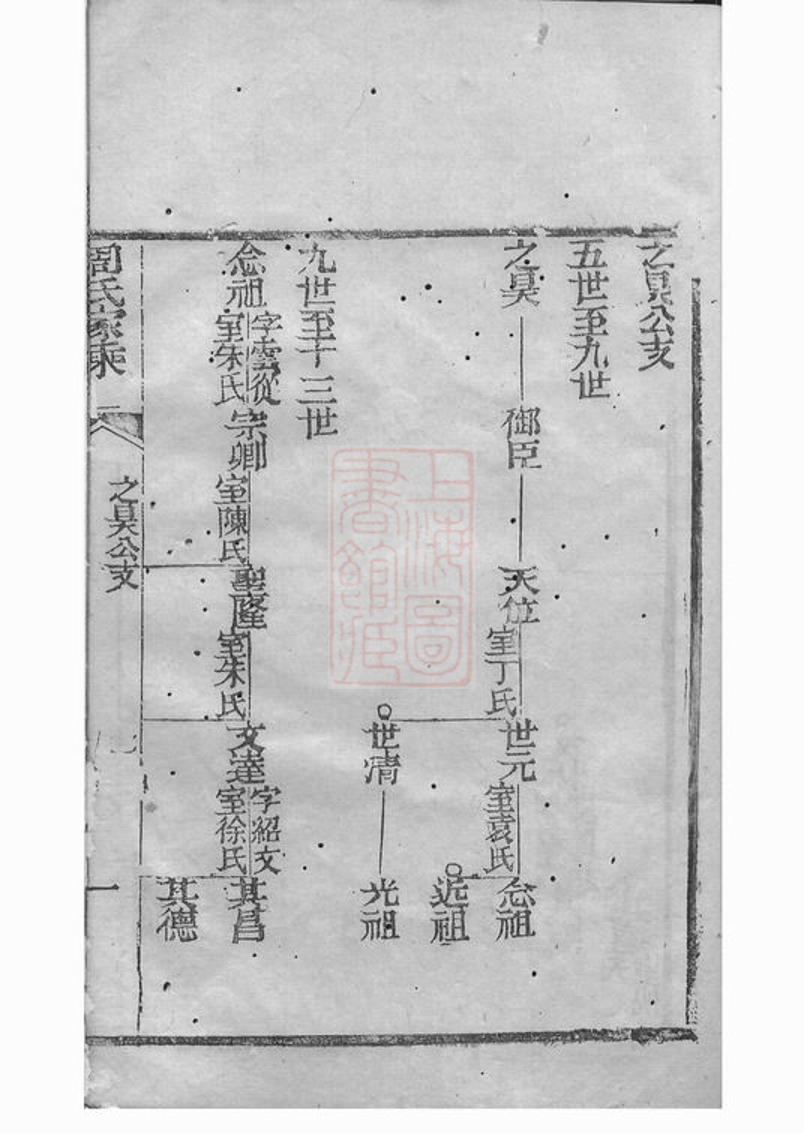 之昊公支
五世至九世
之昊 御臣 天位 室丁氏 世元 室袁氏 念祖
近祖
世清 光祖
九世至十三世
念祖 字雲從 室朱氏 宗卿 室陳氏 聖隆 室朱氏 文達 字紹文 室徐氏 其昌
其德
周氏家乘
二
之昊公支
一
上海圖書館藏